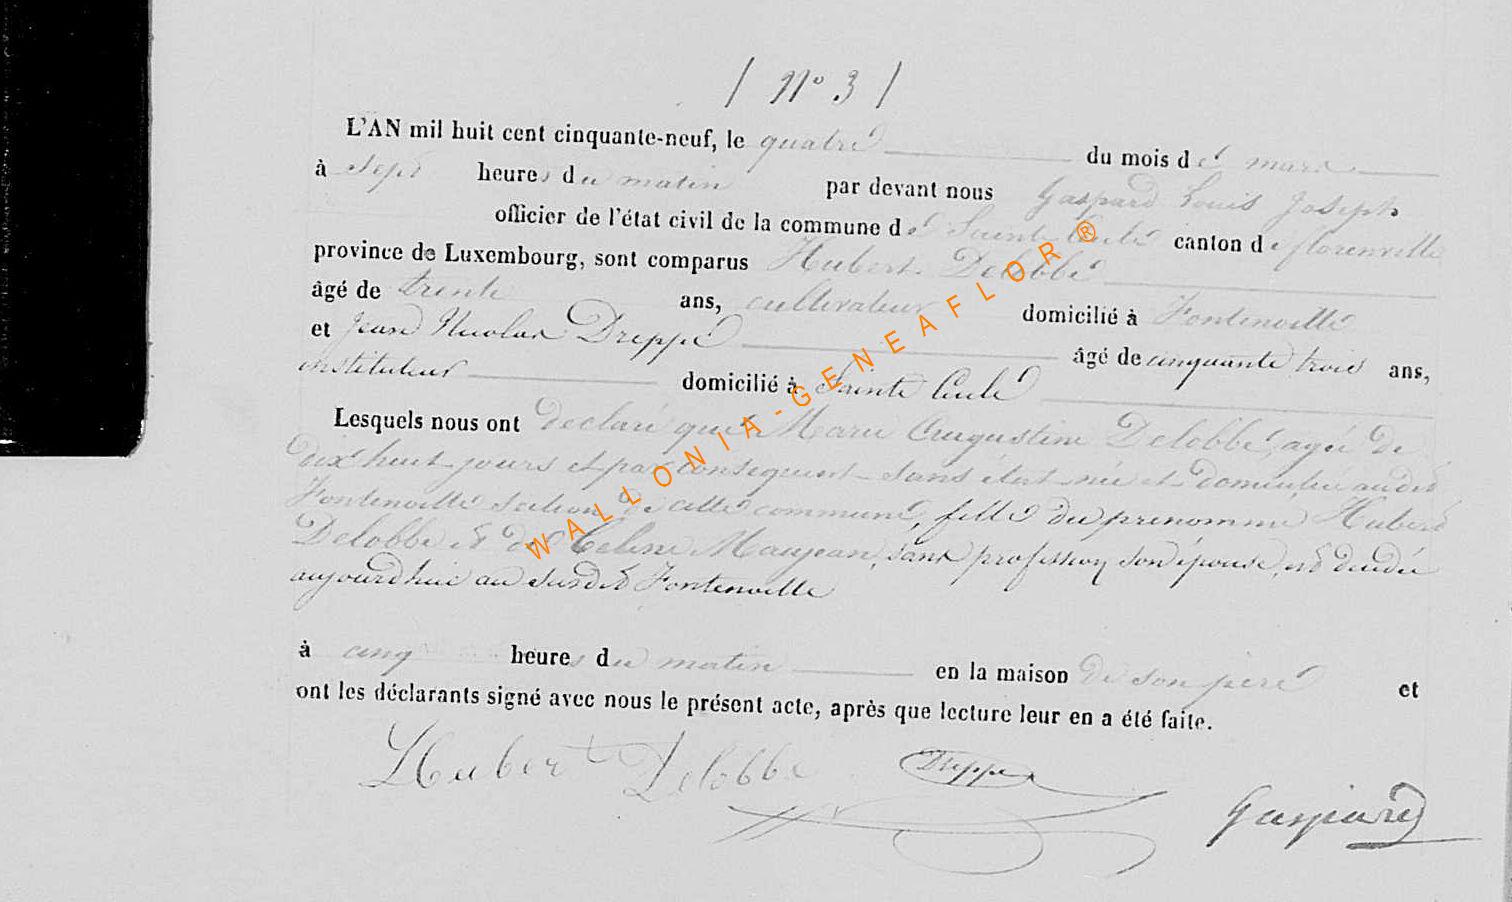 / N° 3 /
L'AN mil huit cent cinquante-neuf, le quatre du mois de mars
à sept heures du matin par devant nous Gaspard Louis Joseph
officier de l'état civil de la commune de Sainte Cécile canton de florenville
province de Luxembourg, sont comparus Hubert Delobbe
âgé de trente ans, cultivateur domicilié à Fontenoille
et Jean Nicolas Dreppe âgé de cinquante trois ans,
instituteur domicilié à Sainte Cécile
Lesquels nous ont déclaré que Marie Augustine Delobbe, agée de
dix huit jours et par conséquent sans état née et domiciliée audit
Fontenoille section de cette commune, fille du prénommé Hubert
Delobbe et de Celine Maujean, sans profession son épouse, est décédée
aujourd'hui au susdit Fontenoille
à cinq heures du matin en la maison de son père et
ont les déclarants signé avec nous le présent acte, après que lecture leur en a été faite.
Hubert Delobbe Dreppe Gaspard
WALLONIA-GENEAFLOR ®